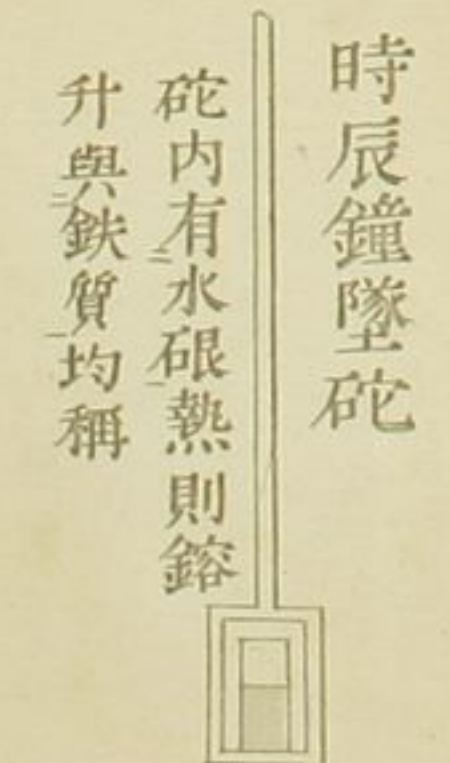 時辰鐘墜砣
砣内有二水硍一熱則鎔
升與二鉄質一均稱